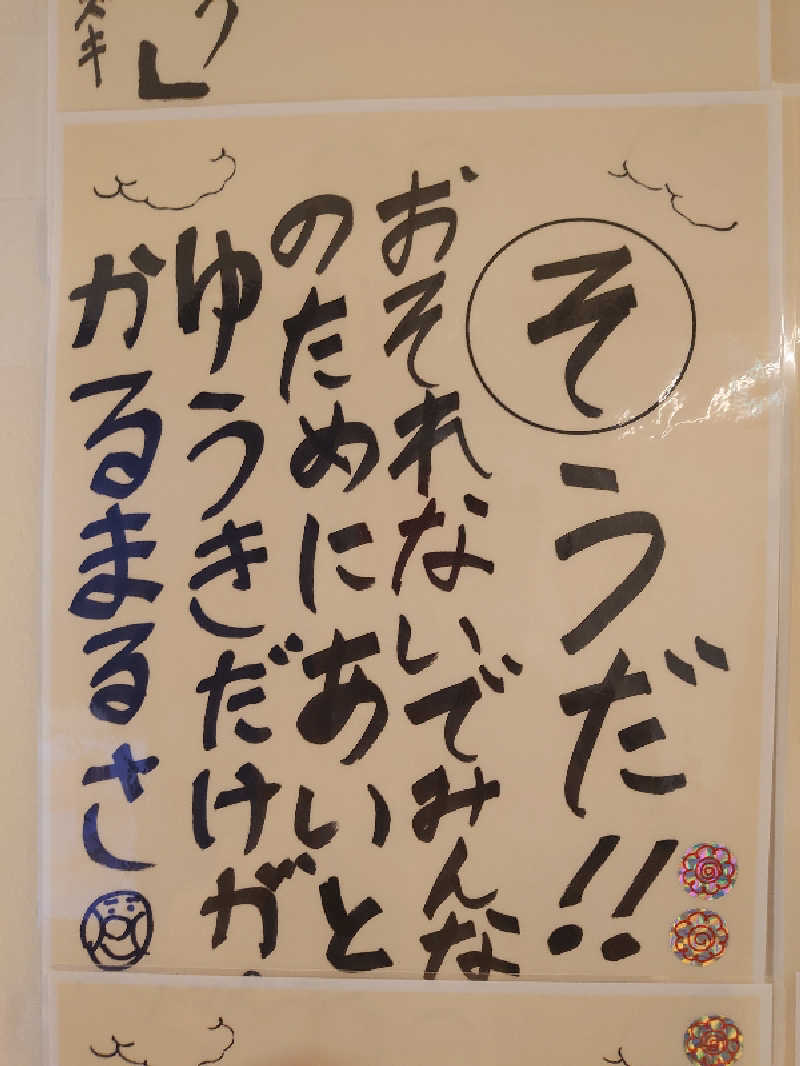 そうだ!!
おそれないでみんな
のためにあいと
ゆうきだけが。
かるまるさ